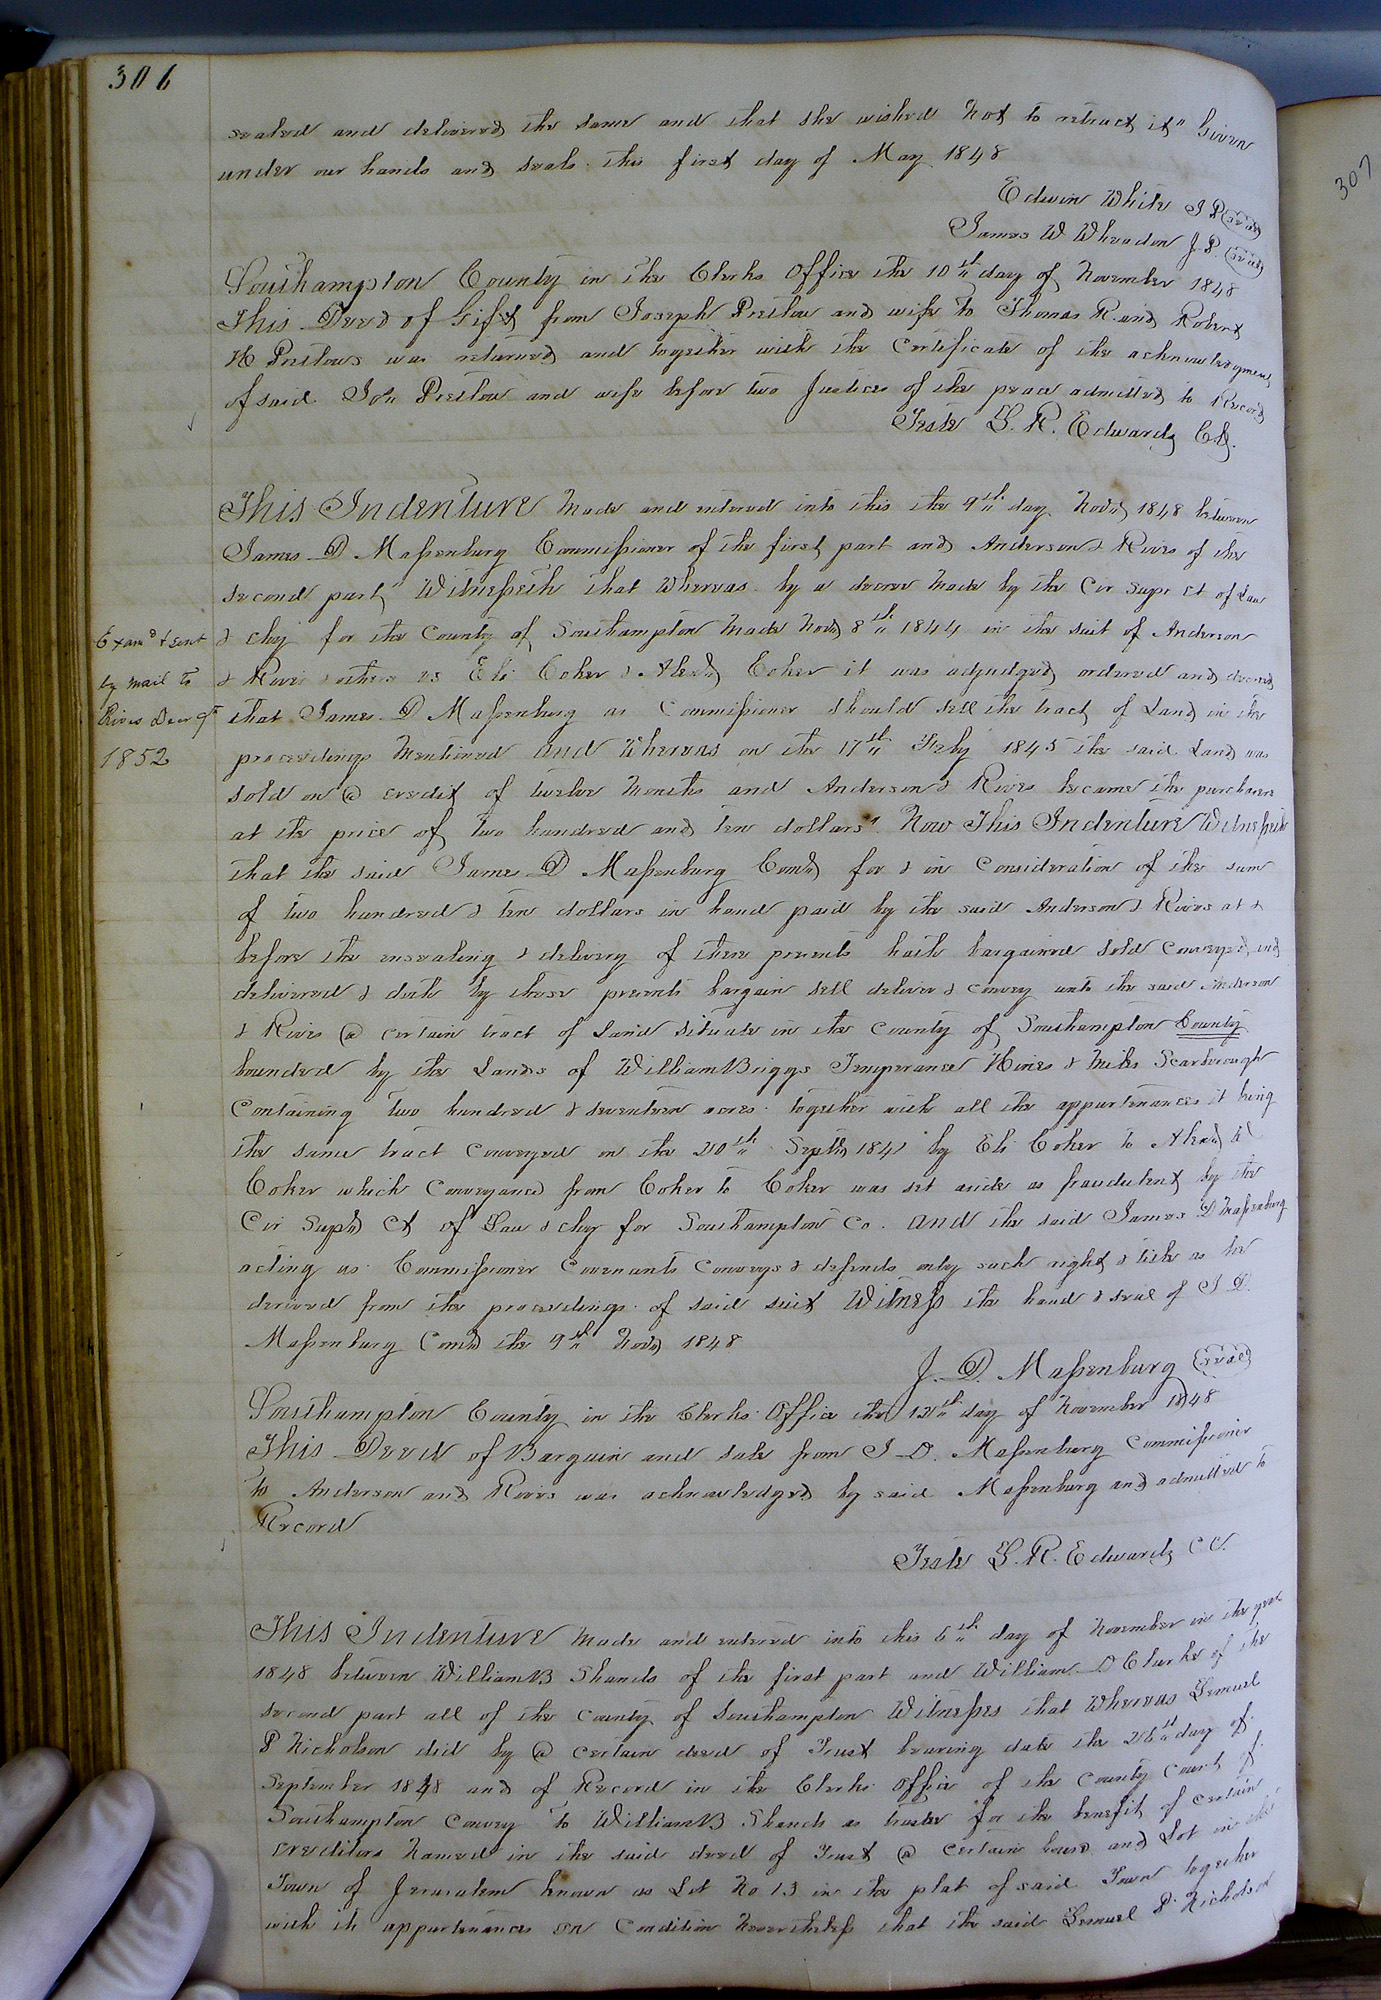 306
sealed and delivered the same and that she wished not to retract it" Given
under our hands and seals this first day of May 1848
Edwin White J P (seal)
James W Wheadon J.P. (seal)
Southampton County in the Clerks Office the 10th day of November 1848
This Deed of Gift from Joseph Prestow and wife to Thomas R. and Robert
H Prestows was returned and together with the Certificate of the acknowledgment
of said Jos Prestow and wife before two Justices of the peace admitted to Record
Teste L. R. Edwards Clk.
This Indenture Made and entered into this the 9th day Novr 1848 between
James D Massenburg Commissioner of the first part and Anderson & Rives of the
second part, Witnesseth that Whereas by a decree Made by the Cir Supr Ct of Law
& chy for the County of Southampton Made Novr 8th 1844 in the suit of Anderson
& Rives & others vs Eli Coker & Alexr Coker it was adjudged, ordered and decreed
that James D Massenburg as Commissioner should sell the tract of Land in the
proceedings Mentioned and Whereas on the 17th Feby 1845 the said Land was
sold on a credit of twelve Months and Anderson & Rives became the purchasers
at the price of two hundred and ten dollars". Now This Indenture Witnesseth
that the said James D Massenburg Comr for & in Consideration of the sum
of two hundred & ten dollars in hand paid by the said Anderson & Rives at &
before the ensealing & delivery of these presents hath bargained sold Conveyed, and
delivered & doth by these presents bargain sell deliver & convey unto the said Anderson
& Rives a certain tract of Land situate in the County of Southampton County
bounded by the Lands of William Briggs Temperance Hines & Miles Scarborough
Containing two hundred & seventeen acres together with all the appurtenances it being
the same tract Conveyed on the 20th Septr 1841 by Eli Coker to Alexr W
Coker which Conveyance from Coker to Coker was set aside as fraudulent by the
Cir Supr Ct of Law & chy for Southampton Co. and the said James D Massenburg
acting as Commissioner Covenants Conveys & defends only such right & title as he
derived from the proceedings of said suit Witness the hand & seal of J D.
Massenburg Comr the 9th Novr 1848
J. D. Massenburg (seal)
Southampton County in the Clerks Office the 13th day of November 1848
This Deed of Bargain and sale from J D. Massenburg Commissioner
to Anderson and Rives was acknowledged by said Massenburg and admitted to
Record
Teste L. R. Edwards C C.
Examd & sent
by mail to
Rives Decr 9th
1852
This Indenture Made and entered into this 6th day of November in the year
1848 between William B Shands of the first part and William D Clarke of the
second part all of the County of Southampton Witnesses that Whereas Lemuel
P Nicholson did by a certain deed of Trust bearing date the 26th day of
September 1848 and of Record in the Clerks Office of the County Court of
Southampton convey to William B Shands as trustee for the benefit of certain
creditors Named in the said deed of Trust a certain house and Lot in the
Town of Jerusalem known as Lot No 13 in the plat of said Town together
with its appurtenances on Condition Nevertheless that the said Lemuel P Nicholson
307